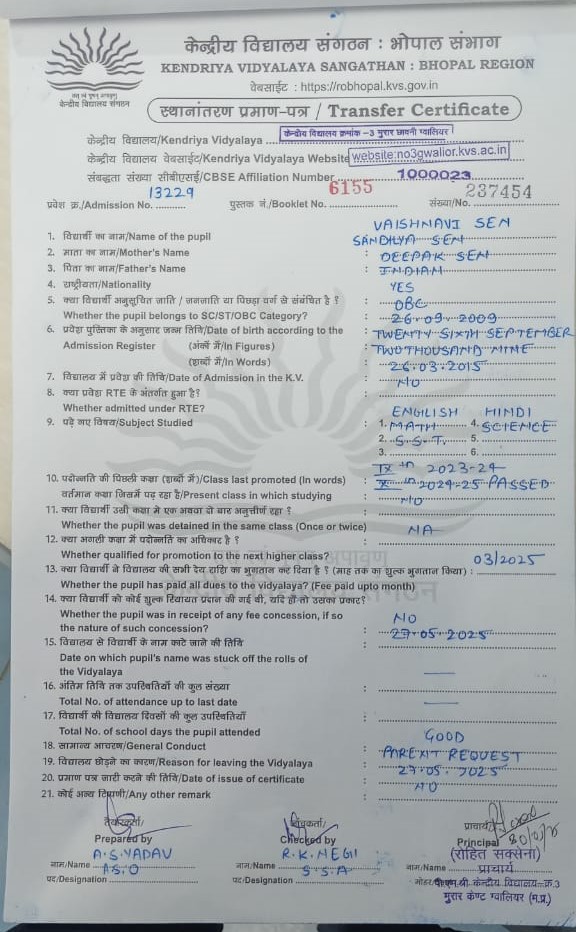 केन्द्रीय विद्यालय संगठन : भोपाल संभाग
KENDRIYA VIDYALAYA SANGATHAN : BHOPAL REGION
वेबसाईट : https://robhopal.kvs.gov.in
केन्द्रीय विद्यालय संगठन
स्थानांतरण प्रमाण-पत्र / Transfer Certificate
केन्द्रीय विद्यालय/Kendriya Vidyalaya केन्द्रीय विद्यालय क्रमांक -3 मुरार छावनी ग्वालियर
केन्द्रीय विद्यालय वेबसाईट/Kendriya Vidyalaya Website website:no3gwalior.kvs.ac.in
संबद्धता संख्या सीबीएसई/CBSE Affiliation Number 1000023
प्रवेश क्र./Admission No. 13229 पुस्तक नं./Booklet No. 6155 संख्या/No. 237454
1. विद्यार्थी का नाम/Name of the pupil : VAISHNAVI SEN
2. माता का नाम/Mother's Name : SANDHYA SEN
3. पिता का नाम/Father's Name : DEEPAK SEN
4. राष्ट्रीयता/Nationality : INDIAN
5. क्या विद्यार्थी अनुसूचित जाति / जनजाति या पिछड़ा वर्ग से संबंधित है ? YES
Whether the pupil belongs to SC/ST/OBC Category? : OBC
6. प्रवेश पुस्तिका के अनुसार जन्म तिथि/Date of birth according to the : 26.09.2009
Admission Register (अंकों में/In Figures) : TWENTY SIXTH SEPTEMBER
(शब्दों में/In Words) : TWO THOUSAND NINE
7. विद्यालय में प्रवेश की तिथि/Date of Admission in the K.V. : 26.03.2015
8. क्या प्रवेश RTE के अंतर्गत हुआ है? : NO
Whether admitted under RTE?
9. पढ़े गए विषय/Subject Studied : ENGILISH HINDI
1. MATH 4. SCIENCE
2. S.S.T. 5.
3. 6.
10. पदोन्नति की पिछली कक्षा (शब्दों में)/Class last promoted (In words) : IX in 2023-24
वर्तमान कक्षा जिसमें पढ़ रहा है/Present class in which studying : X in 2024-25 PASSED
11. क्या विद्यार्थी उसी कक्षा में एक अथवा दो बार अनुत्तीर्ण रहा ? NO
Whether the pupil was detained in the same class (Once or twice) :
12. क्या अगली कक्षा में पदोन्नति का अधिकार है ? NA
Whether qualified for promotion to the next higher class? :
13. क्या विद्यार्थी ने विद्यालय की सभी देय राशि का भुगतान कर दिया है ? (माह तक का शुल्क भुगतान किया) : 03/2025
Whether the pupil has paid all dues to the vidyalaya? (Fee paid upto month)
14. क्या विद्यार्थी को कोई शुल्क रियायत प्रदान की गई थी, यदि हाँ तो उसका प्रकार? :
Whether the pupil was in receipt of any fee concession, if so
the nature of such concession? : NO
15. विद्यालय से विद्यार्थी के नाम काटे जाने की तिथि : 27.05.2025
Date on which pupil's name was stuck off the rolls of
the Vidyalaya
16. अंतिम तिथि तक उपस्थितियों की कुल संख्या :
Total No. of attendance up to last date
17. विद्यार्थी की विद्यालय दिवसों की कुल उपस्थितियाँ :
Total No. of school days the pupil attended
18. सामान्य आचरण/General Conduct : GOOD
19. विद्यालय छोड़ने का कारण/Reason for leaving the Vidyalaya : PARENT REQUEST
20. प्रमाण पत्र जारी करने की तिथि/Date of issue of certificate : 27.05.2025
21. कोई अन्य टिप्पणी/Any other remark : NO
तैयारकर्ता/
Prepared by
नाम/Name A.S.YADAV
पद/Designation ASO
Checked by
नाम/Name R.K.NEGI
पद/Designation SSA
प्राचार्य/
Principal
(रोहित सक्सेना)
नाम/Name प्राचार्य
पी.एम.श्री केन्द्रीय विद्यालय-क्र.3
मुरार केण्ट ग्वालियर (म.प्र.)